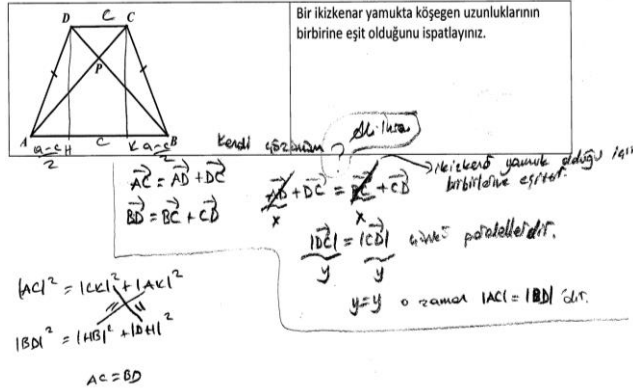 D c C
Bir ikizkenar yamukta köşegen uzunluklarının
birbirine eşit olduğunu ispatlayınız.
P
A H C K B
a-c/2 a-c/2
kendi çözümüm ?
AC = AD + DC
BD = BC + CD
AD + DC = BC + CD
x x
ikizkenar yamuk olduğu için
birbirlerine eşittir.
|DC| = |CD| çünkü paraleldir.
y y
y=y o zaman |AC| = |BD| dir.
|AC|² = |CK|² + |AK|²
|BD|² = |HB|² + |DH|²
AC = BD